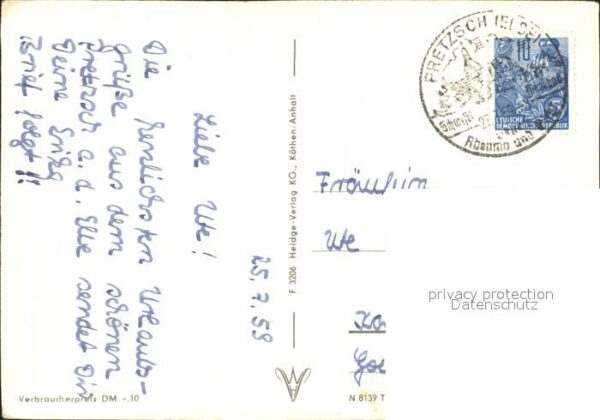 25.7.59
Liebe Ute!
Die herzlichsten Urlaubs-
grüße aus dem schönen
Pretzsch a. d. Elbe sendet Dir
Deine Erika
Brief folgt!!
Verbraucherpreis DM -.10
F 3206 Heldge-Verlag KG., Köthen-Anhalt
PRETZSCH (ELBE)
Rheuma und
10
DEUTSCHE
DEMOKRATISCHE REPUBLIK
Fräulein
Ute
privacy protection
Datenschutz
N 8139 T